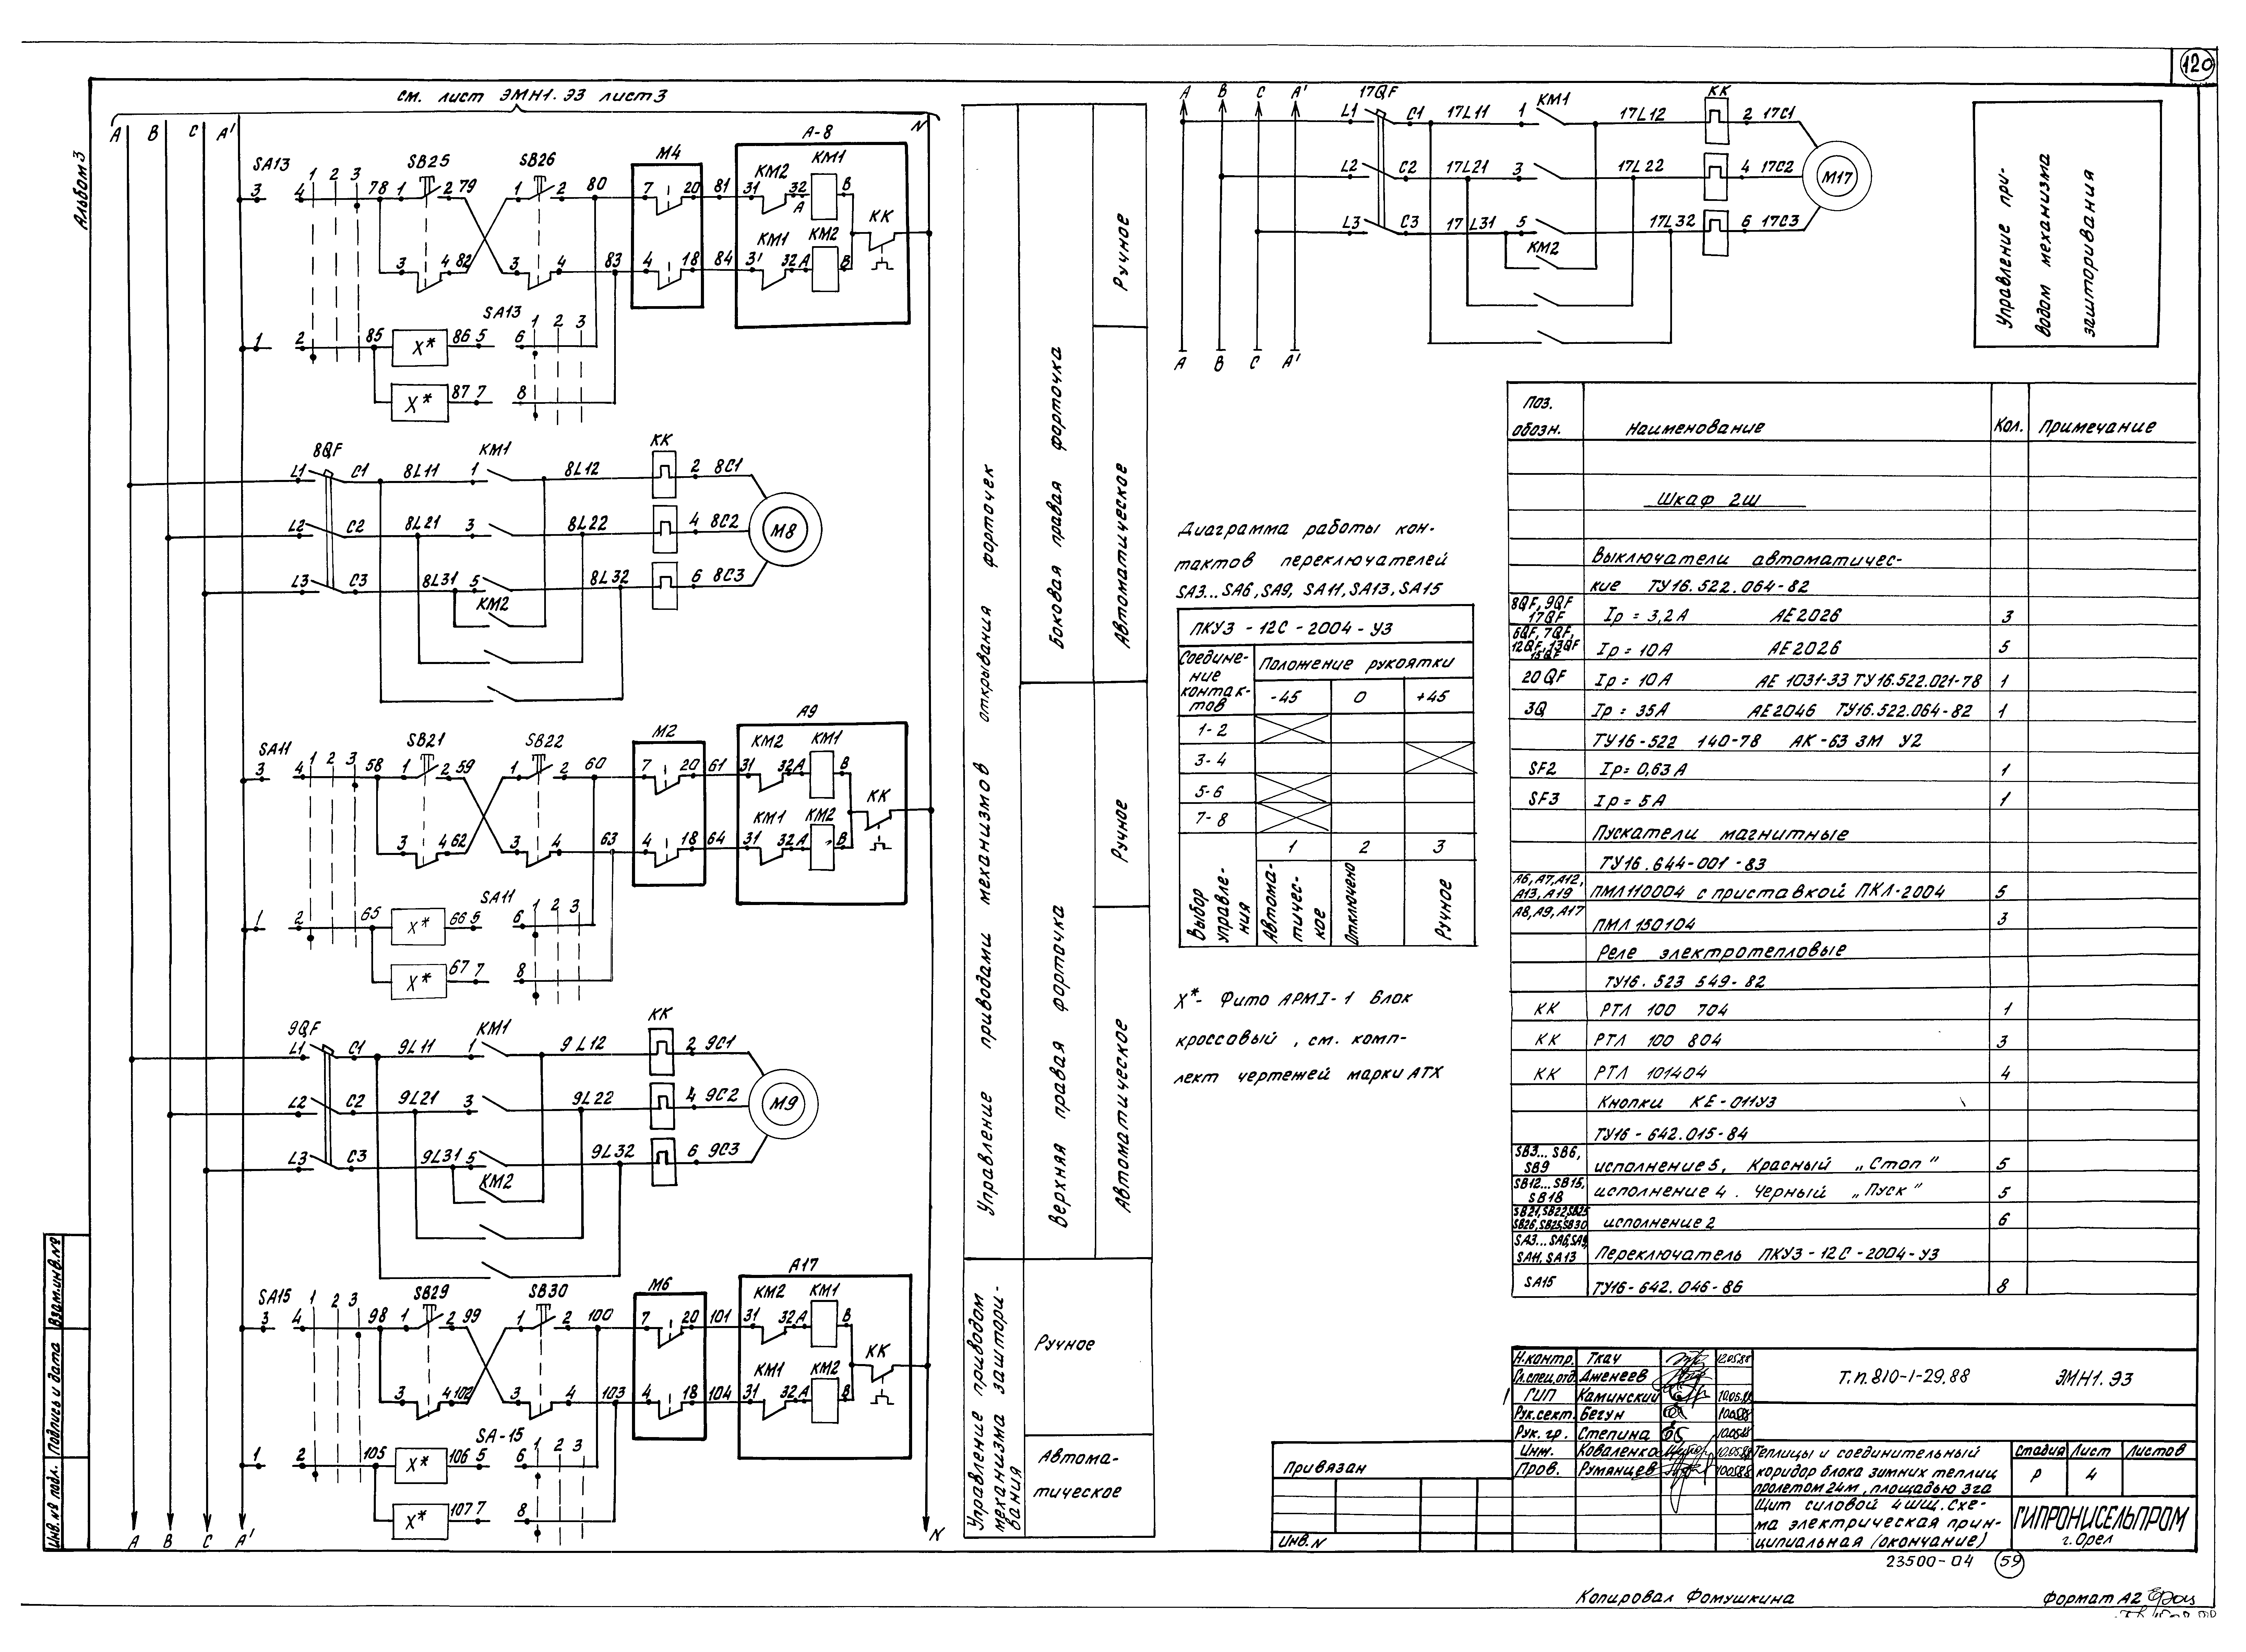 120
Альбом 3
см. лист ЭМН1.ЭЗ лист 3
A B C A' N
SA13 1 2 3 SB25 SB26 M4 A-8
3 4 78 1 2 79 1 2 80 7 20 81 31 KM2 32 A KM1 B KK
3 4 82 3 4 83 4 18 84 31 KM1 32 A KM2 B
SA13 1 2 3
1 2 85 X* 86 5 6
X* 87 7 8
8QF KM1 KK
L1 C1 8L11 1 8L12 2 8C1
L2 C2 8L21 3 8L22 4 8C2 M8
L3 C3 8L31 5 8L32 6 8C3
KM2
SA11 1 2 3 SB21 SB22 M2 A9
3 4 58 1 2 59 1 2 60 7 20 61 31 KM2 32 A KM1 B KK
3 4 62 3 4 63 4 18 64 31 KM1 32 A KM2 B
SA11 1 2 3
1 2 65 X* 66 5 6
X* 67 7 8
9QF KM1 KK
L1 C1 9L11 1 9L12 2 9C1
L2 C2 9L21 3 9L22 4 9C2 M9
L3 C3 9L31 5 9L32 6 9C3
KM2
SA15 1 2 3 SB29 SB30 M6 A17
3 4 98 1 2 99 1 2 100 7 20 101 31 KM2 32 A KM1 B KK
3 4 102 3 4 103 4 18 104 31 KM1 32 A KM2 B
SA-15 1 2 3
1 2 105 X* 106 5 6
X* 107 7 8
A B C A' N
Управление приводами механизмов открывания форточек
Боковая правая форточка
Ручное
Автоматическое
Верхняя правая форточка
Ручное
Автоматическое
Управление приводом
механизма заштори-
вания
Ручное
Автома-
тическое
A B C A' 17QF KM1 KK
L1 C1 17L11 1 17L12 2 17C1
L2 C2 17L21 3 17L22 4 17C2 M17
L3 C3 17L31 5 17L32 6 17C3
KM2
A B C A'
Управление при-
водам механизма
зашторивания
Диаграмма работы кон-
тактов переключателей
SA3...SA6, SA9, SA11, SA13, SA15
ПКУЗ - 12С - 2004 - У3
Соедине-
ние
контак-
тов
Положение рукоятки
-45 0 +45
1-2
3-4
5-6
7-8
1 2 3
Выбор
управле-
ния
Автома-
тичес-
кое
Отключено
Ручное
X*- Фито АРМI-1 Блок
кроссовый, см. комп-
лект чертежей марки АТХ
Поз.
обозн. Наименование Кол. Примечание
Шкаф 2Ш
Выключатели автоматичес-
кие ТУ16.522.064-82
8QF, 9QF
17QF Iр = 3,2А АЕ2026 3
6QF, 7QF,
12QF, 13QF
15QF Iр = 10А АЕ2026 5
20QF Iр = 10А АЕ 1031-33 ТУ16.522.021-78 1
3Q Iр = 35А АЕ2046 ТУ16.522.064-82 1
ТУ16-522 140-78 АК-63 3М У2
SF2 Iр = 0,63А 1
SF3 Iр = 5А 1
Пускатели магнитные
ТУ16.644-001-83
А6, А7, А12,
А13, А19 ПМЛ110004 с приставкой ПКЛ-2004 5
А8, А9, А17 ПМЛ 150104 3
Реле электротепловые
ТУ16. 523 549-82
КК РТЛ 100 704 1
КК РТЛ 100 804 3
КК РТЛ 101404 4
Кнопки КЕ-011У3
ТУ16-642.015-84
SB3...SB6,
SB9 исполнение 5, Красный „Стоп" 5
SB12...SB15,
SB18 исполнение 4. Черный „Пуск" 5
SB21, SB22, SB25
SB26, SB25, SB30 исполнение 2 6
SA3...SA6, SA9,
SA11, SA13 Переключатель ПКУЗ-12С-2004-У3
SA15 ТУ16-642.046-86 8
Н.контр. Ткач 12.05.88
Гл.спец.отд. Дженеев
ГИП Каминский 10.05.88
Рук.сект. Бегун 10.05.88
Рук. гр. Степина 10.05.88
Инж. Коваленко 10.05.88
Пров. Румянцев 10.05.88
Т.п. 810-1-29.88 ЭМН1.ЭЗ
Теплицы и соединительный
коридор блока зимних теплиц
пролетом 24м, площадью 3га
Стадия Лист Листов
Р 4
Щит силовой 4ШЩ. Схе-
ма электрическая прин-
ципиальная (окончание)
ГИПРОНИСЕЛЬПРОМ
г. Орел
Привязан
Инв. N
23500-04 59
Копировал Фомушкина Формат А2
Инв.№ подл. Подпись и дата Взам.инв.№